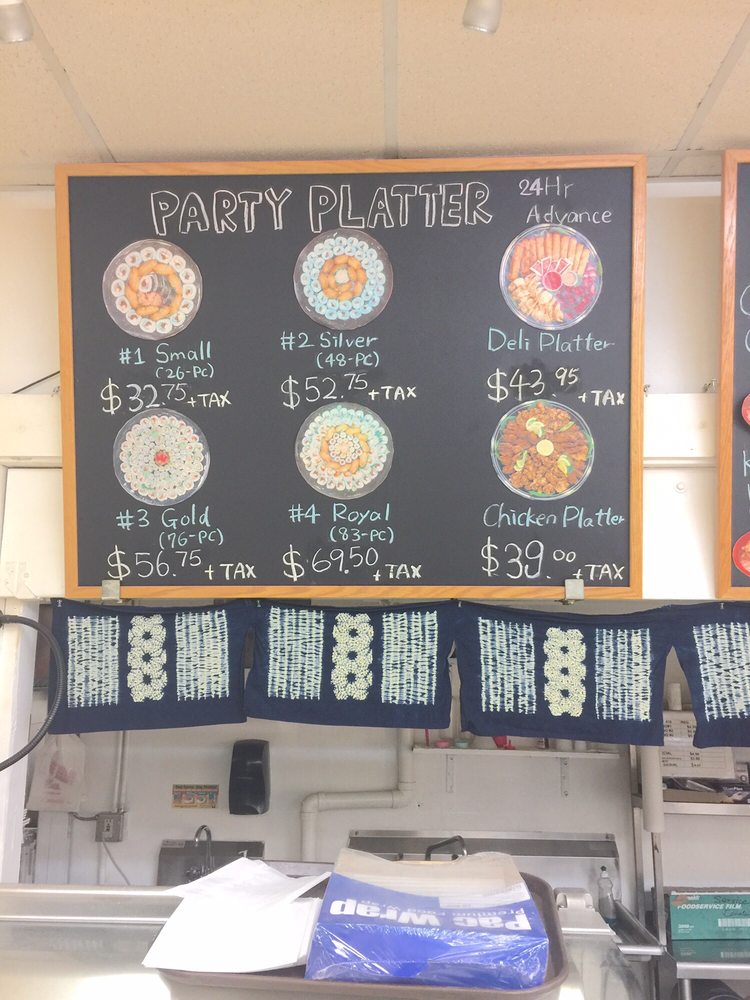 PARTY PLATTER
24Hr
Advance
#1 Small
(26-PC)
$32.75 + TAX
#2 Silver
(48-PC)
$52.75 + TAX
Deli Platter
$43.95 + TAX
#3 Gold
(76-PC)
$56.75 + TAX
#4 Royal
(83-PC)
$69.50 + TAX
Chicken Platter
$39.00 + TAX
Pac Wrap
Premium
FOODSERVICE FILM